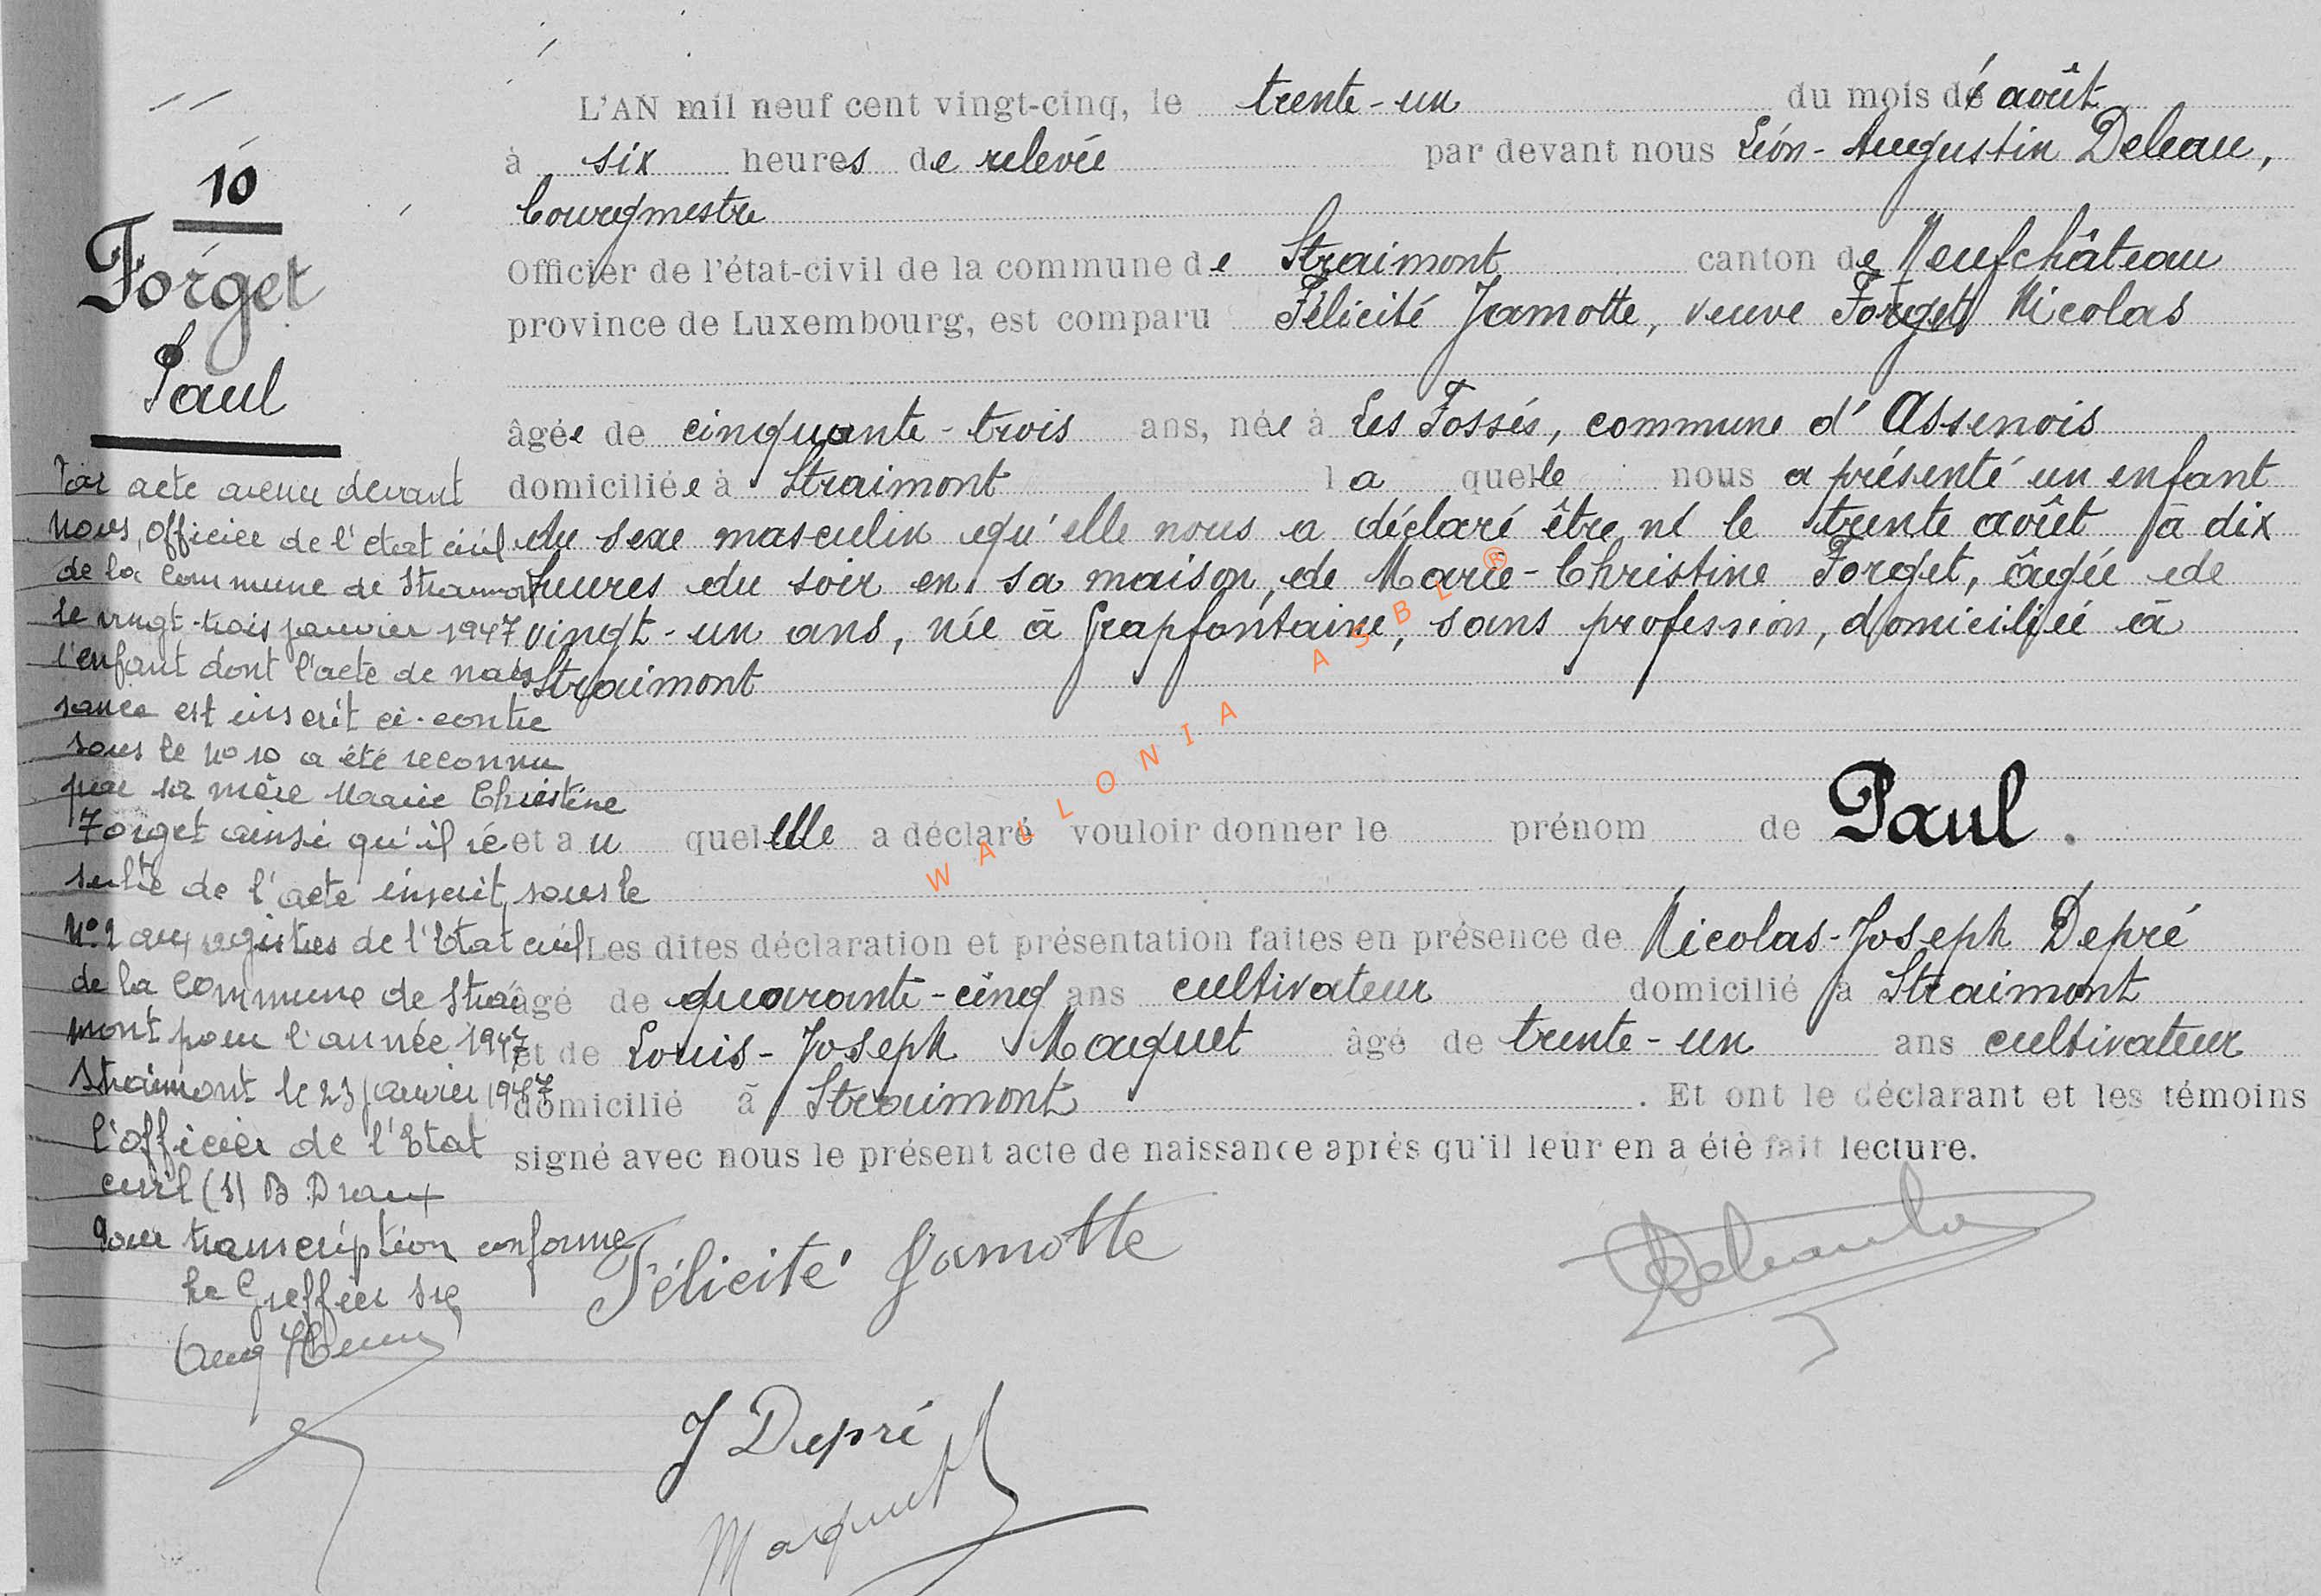 10
Forget
Paul
Par acte avenu devant
nous, officier de l'etat civil
de la commune de Straimont
le vingt-trois janvier 1947
l'enfant dont l'acte de nais
sance est inscrit ci-contre
sous le no 10 a été reconnu
par sa mère Marie Christine
Forget ainsi qu'il ré
sulte de l'acte inscrit sous le
No 2 aux registres de l'Etat civil
de la Commune de Strai
mont pour l'année 1947
Straimont le 23 janvier 1947
l'officier de l'Etat
civil (s) B Draux
Pour transcription conforme
Le Greffier
L'AN mil neuf cent vingt-cinq, le trente-un du mois d'août
à six heures de relevée par devant nous Léon-Augustin Deleau,
bourgmestre
Officier de l'état-civil de la commune de Straimont canton de Neufchâteau
province de Luxembourg, est comparu Félicité Jamotte, veuve Forget Nicolas
âgée de cinquante-trois ans, née à Les Fossés, commune d'Assenois
domiciliée à Straimont laquelle nous a présenté un enfant
du sexe masculin qu'elle nous a déclaré être né le trente août à dix
heures du soir en sa maison, de Marie-Christine Forget, âgée de
vingt-un ans, née à Grapfontaine, sans profession, domiciliée à
Straimont
et au quel elle a déclaré vouloir donner le prénom de Paul.
Les dites déclaration et présentation faites en présence de Nicolas-Joseph Depré
âgé de quarante-cinq ans cultivateur domicilié à Straimont
et de Louis-Joseph Maquet âgé de trente-un ans cultivateur
domicilié à Straimont. Et ont le déclarant et les témoins
signé avec nous le présent acte de naissance après qu'il leur en a été fait lecture.
Félicité Jamotte
J Depré
Maquet
WALLONIA ASBL ®